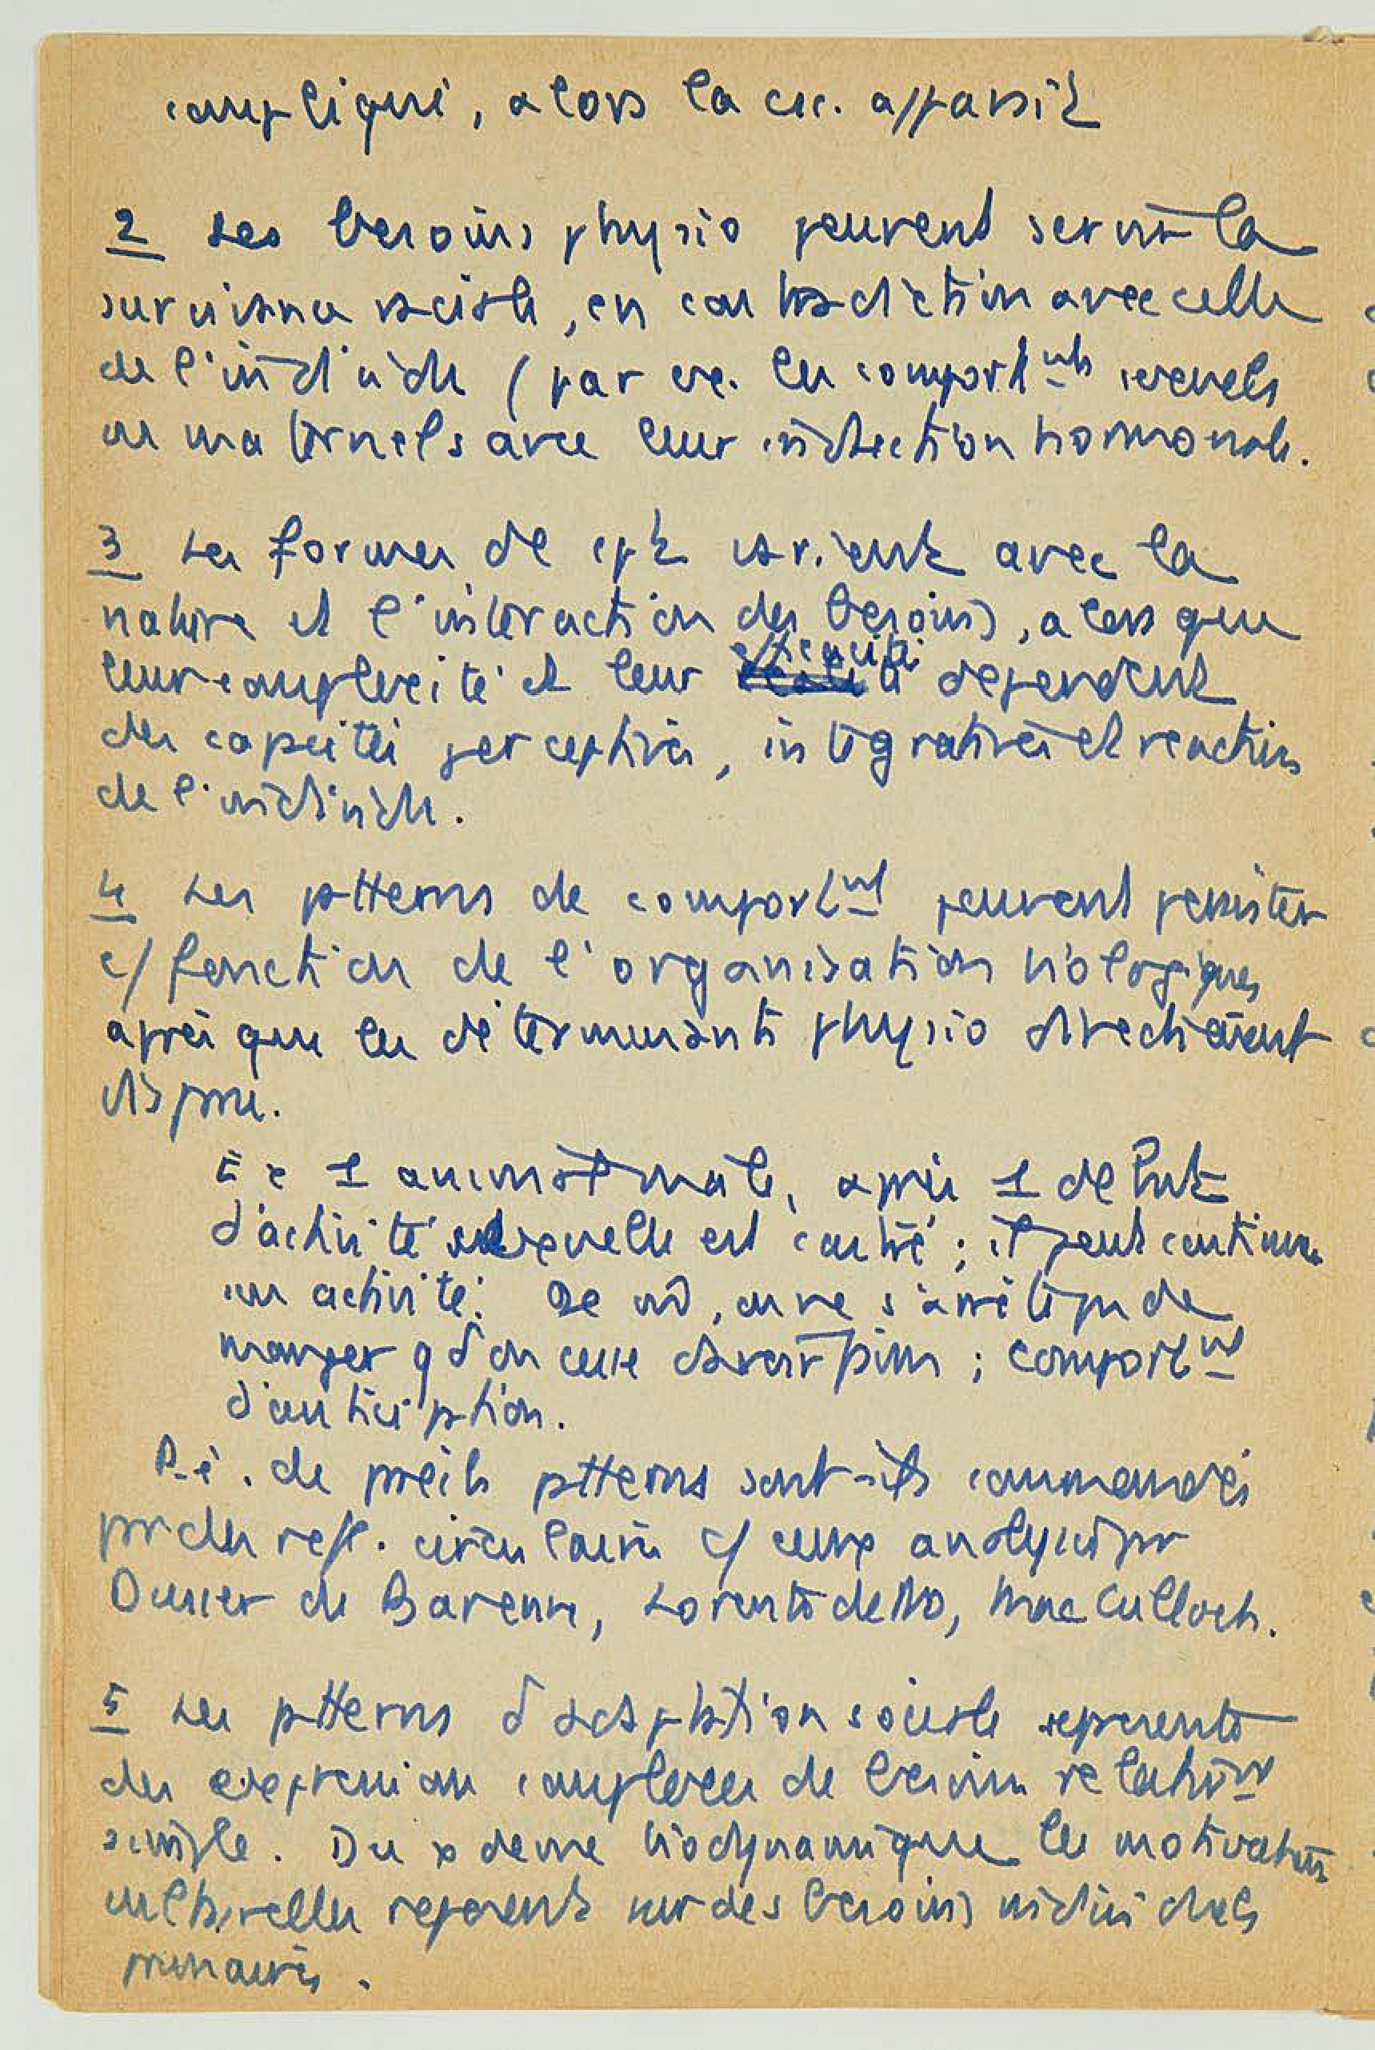 compliqué, alors la cc. apparaît
2 Les besoins physio peuvent servir la
survivance raciale, en contradiction avec celle
de l'individu (par ex. les comportmts sexuels
ou maternels avec leur indection hormonale.
3 Les formes de cpt varient avec la
nature et l'interaction des besoins, alors que
leur complexité et leur efficacité dependent
des capacités perceptives, intégratives et reactives
de l'individu.
4 Les patterns de comportmt peuvent persister
c/ fonction de l'organisation biologiques
après que les déterminants physio directs aient
disparu.
Ex 1 animal mâle, après 1 debut
d'activité sexuelle est castré ; il peut continuer
son activité. De m̂, on ne s'arrête pas de
manger qd on cesse d'avoir faim ; comportmt
d'anticipation.
P.ê. de pareils patterns sont-ils commandés
par des refl. circulaires c/ ceux analysés par
Dusser de Barenne, Lorente de No, Mac Culloch.
5 Les patterns d'adaptation sociale représente
des expression complexes de besoins relativmt
simple. Du x de vue biodynamique les motivations
culturelles reposent sur des besoins individuels
primaires.